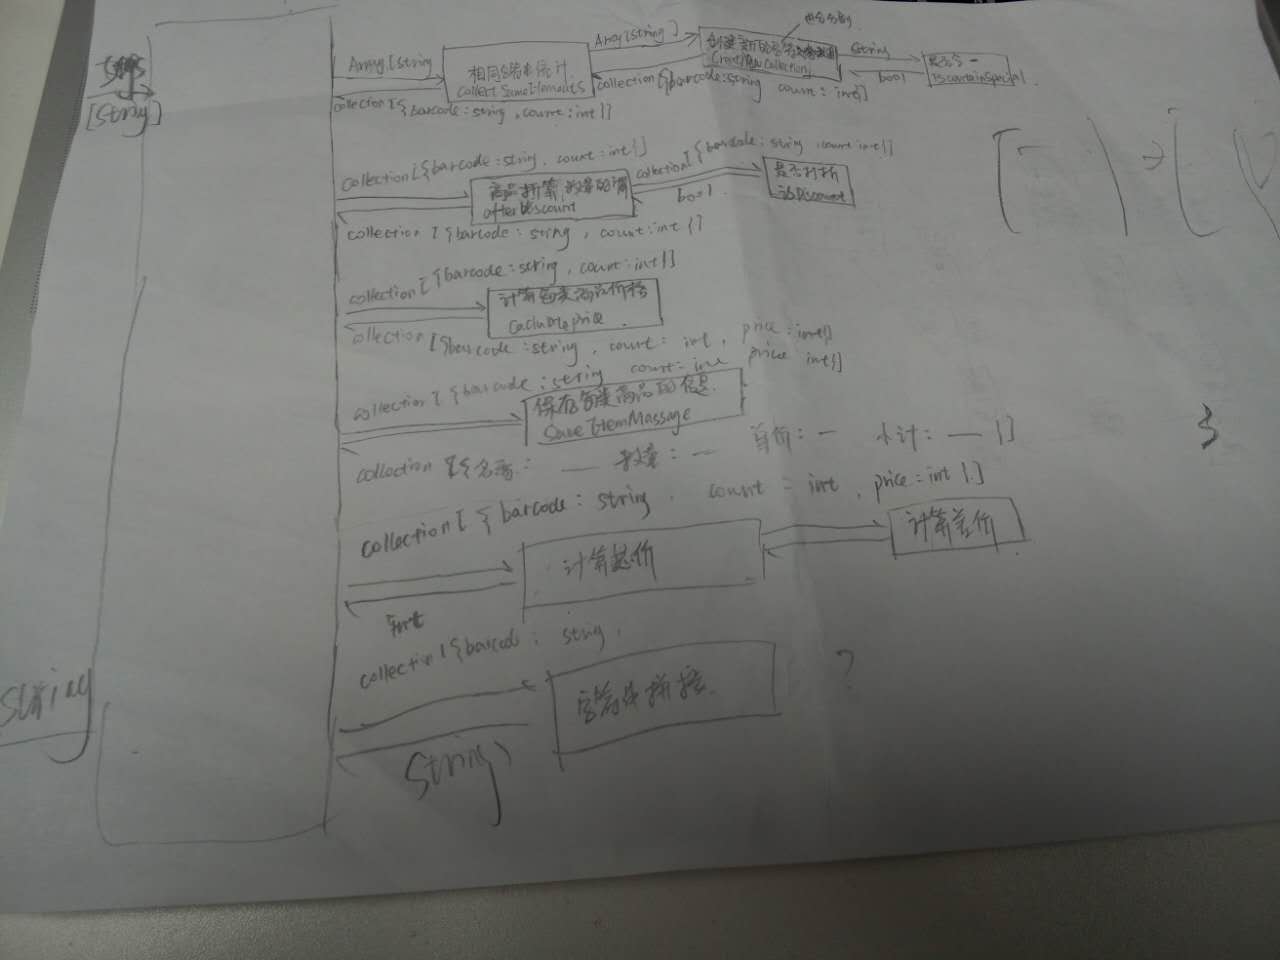 [String]
Array[string
相同条目统计
collect SameElements
Array[string]
创建新的
CreatNewCollection
string
是否含-
IsContainSpecial
bool
collection[{barcode:string count:int}]
collection[{barcode:string,count:int}]
collection[{barcode:string, count:int}]
collection[{barcode:string,count:int}]
商品折算
afterDiscount
是否打折
isDiscount
bool
collection[{barcode:string, count:int}]
collection[{barcode:string, count:int}]
计算每类商品价格
collection[{barcode:string, count: int, price:int}]
collection[{barcode:string count:int price int}]
保存每类商品的信息
Save ItemMassage
collection[{名称: — 数量: — 单价: — 小计: — }]
collection[{barcode: string, count = int, price = int}]
计算总价
计算差价
int
collection[{barcode: string,
字符串拼接
?
string
string